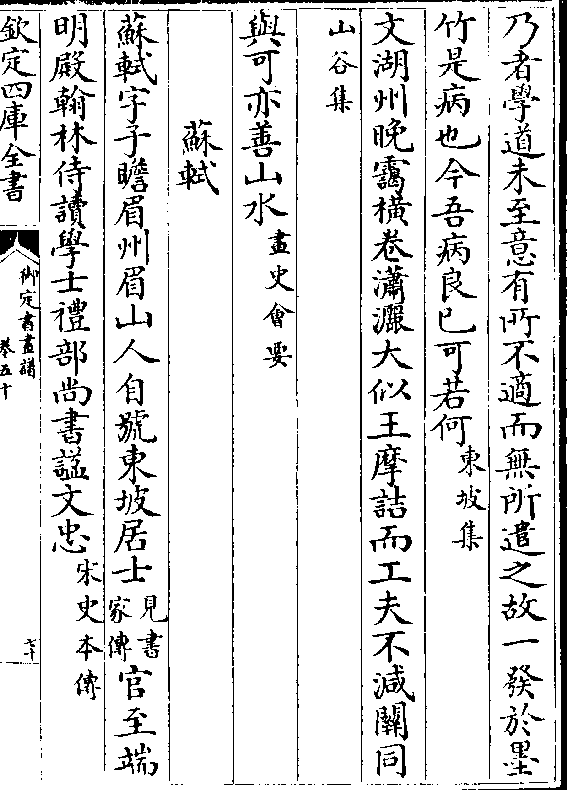 乃者學道未至意有所不適而無所遣之故一發於墨
竹是病也今吾病良已可若何東坡集
文湖州晚靄橫卷瀟灑大似王摩詰而工夫不減關同
山谷集
與可亦善山水畫史會要
蘇軾
蘇軾字子瞻眉州眉山人自號東坡居士見書家傳官至端
明殿翰林侍讀學士禮部尚書諡文忠宋史本傳
欽定四庫全書
御定書畫譜
卷五十